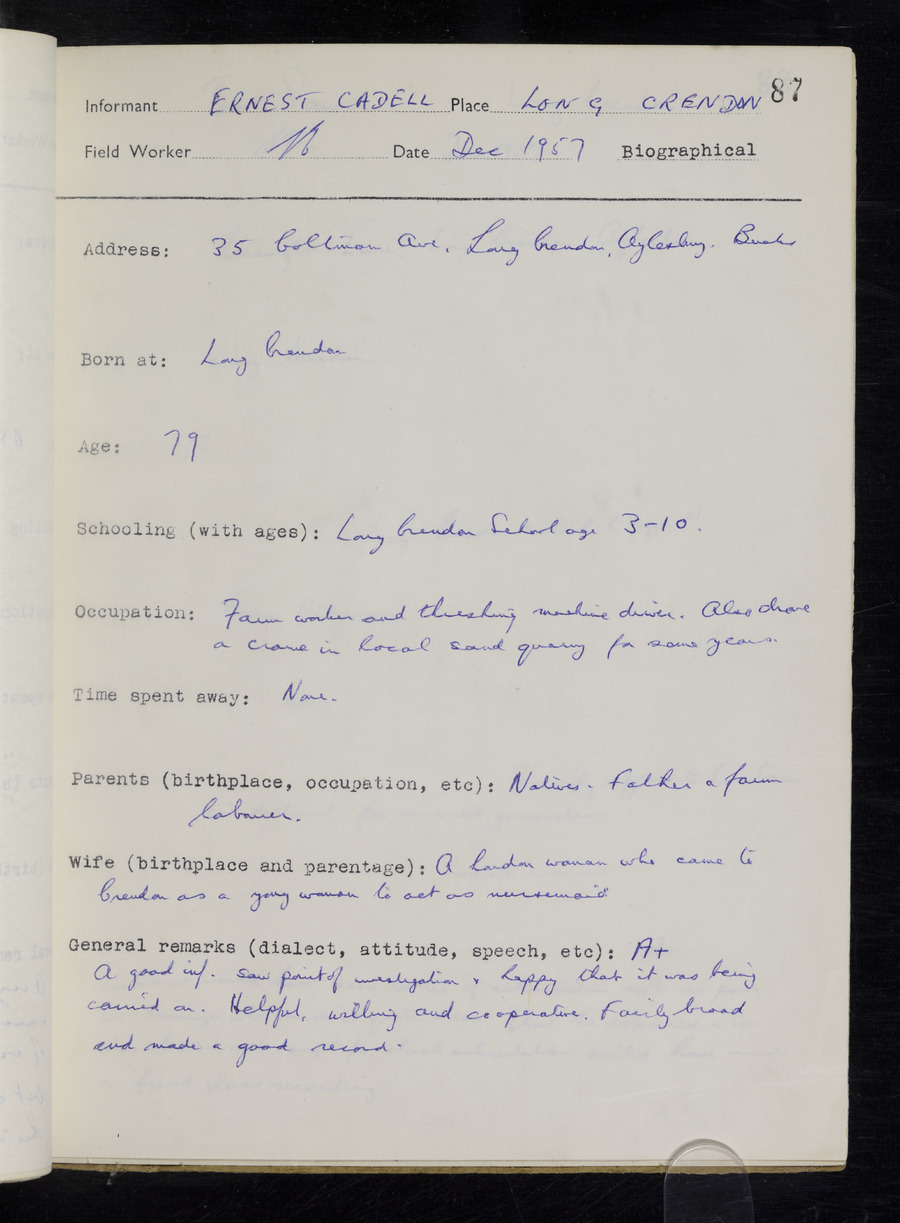 87
Informant ERNEST CADELL Place LONG CRENDON
Field Worker Date Dec 1957 Biographical
Address: 35 Coltman Ave. Long Crendon, Aylesbury. Bucks
Born at: Long Crendon
Age: 79
Schooling (with ages): Long Crendon School age 3-10.
Occupation: Farm worker and threshing machine driver. Also drove
a crane in local sand quarry for some years.
Time spent away: None.
Parents (birthplace, occupation, etc): Natives. Father a farm
labourer.
Wife (birthplace and parentage): A London woman who came to
Crendon as a young woman to act as nursemaid
General remarks (dialect, attitude, speech, etc): A+
A good inf. saw point of investigation & happy that it was being
carried on. Helpful, willing and cooperative. Fairly broad
and made a good record.